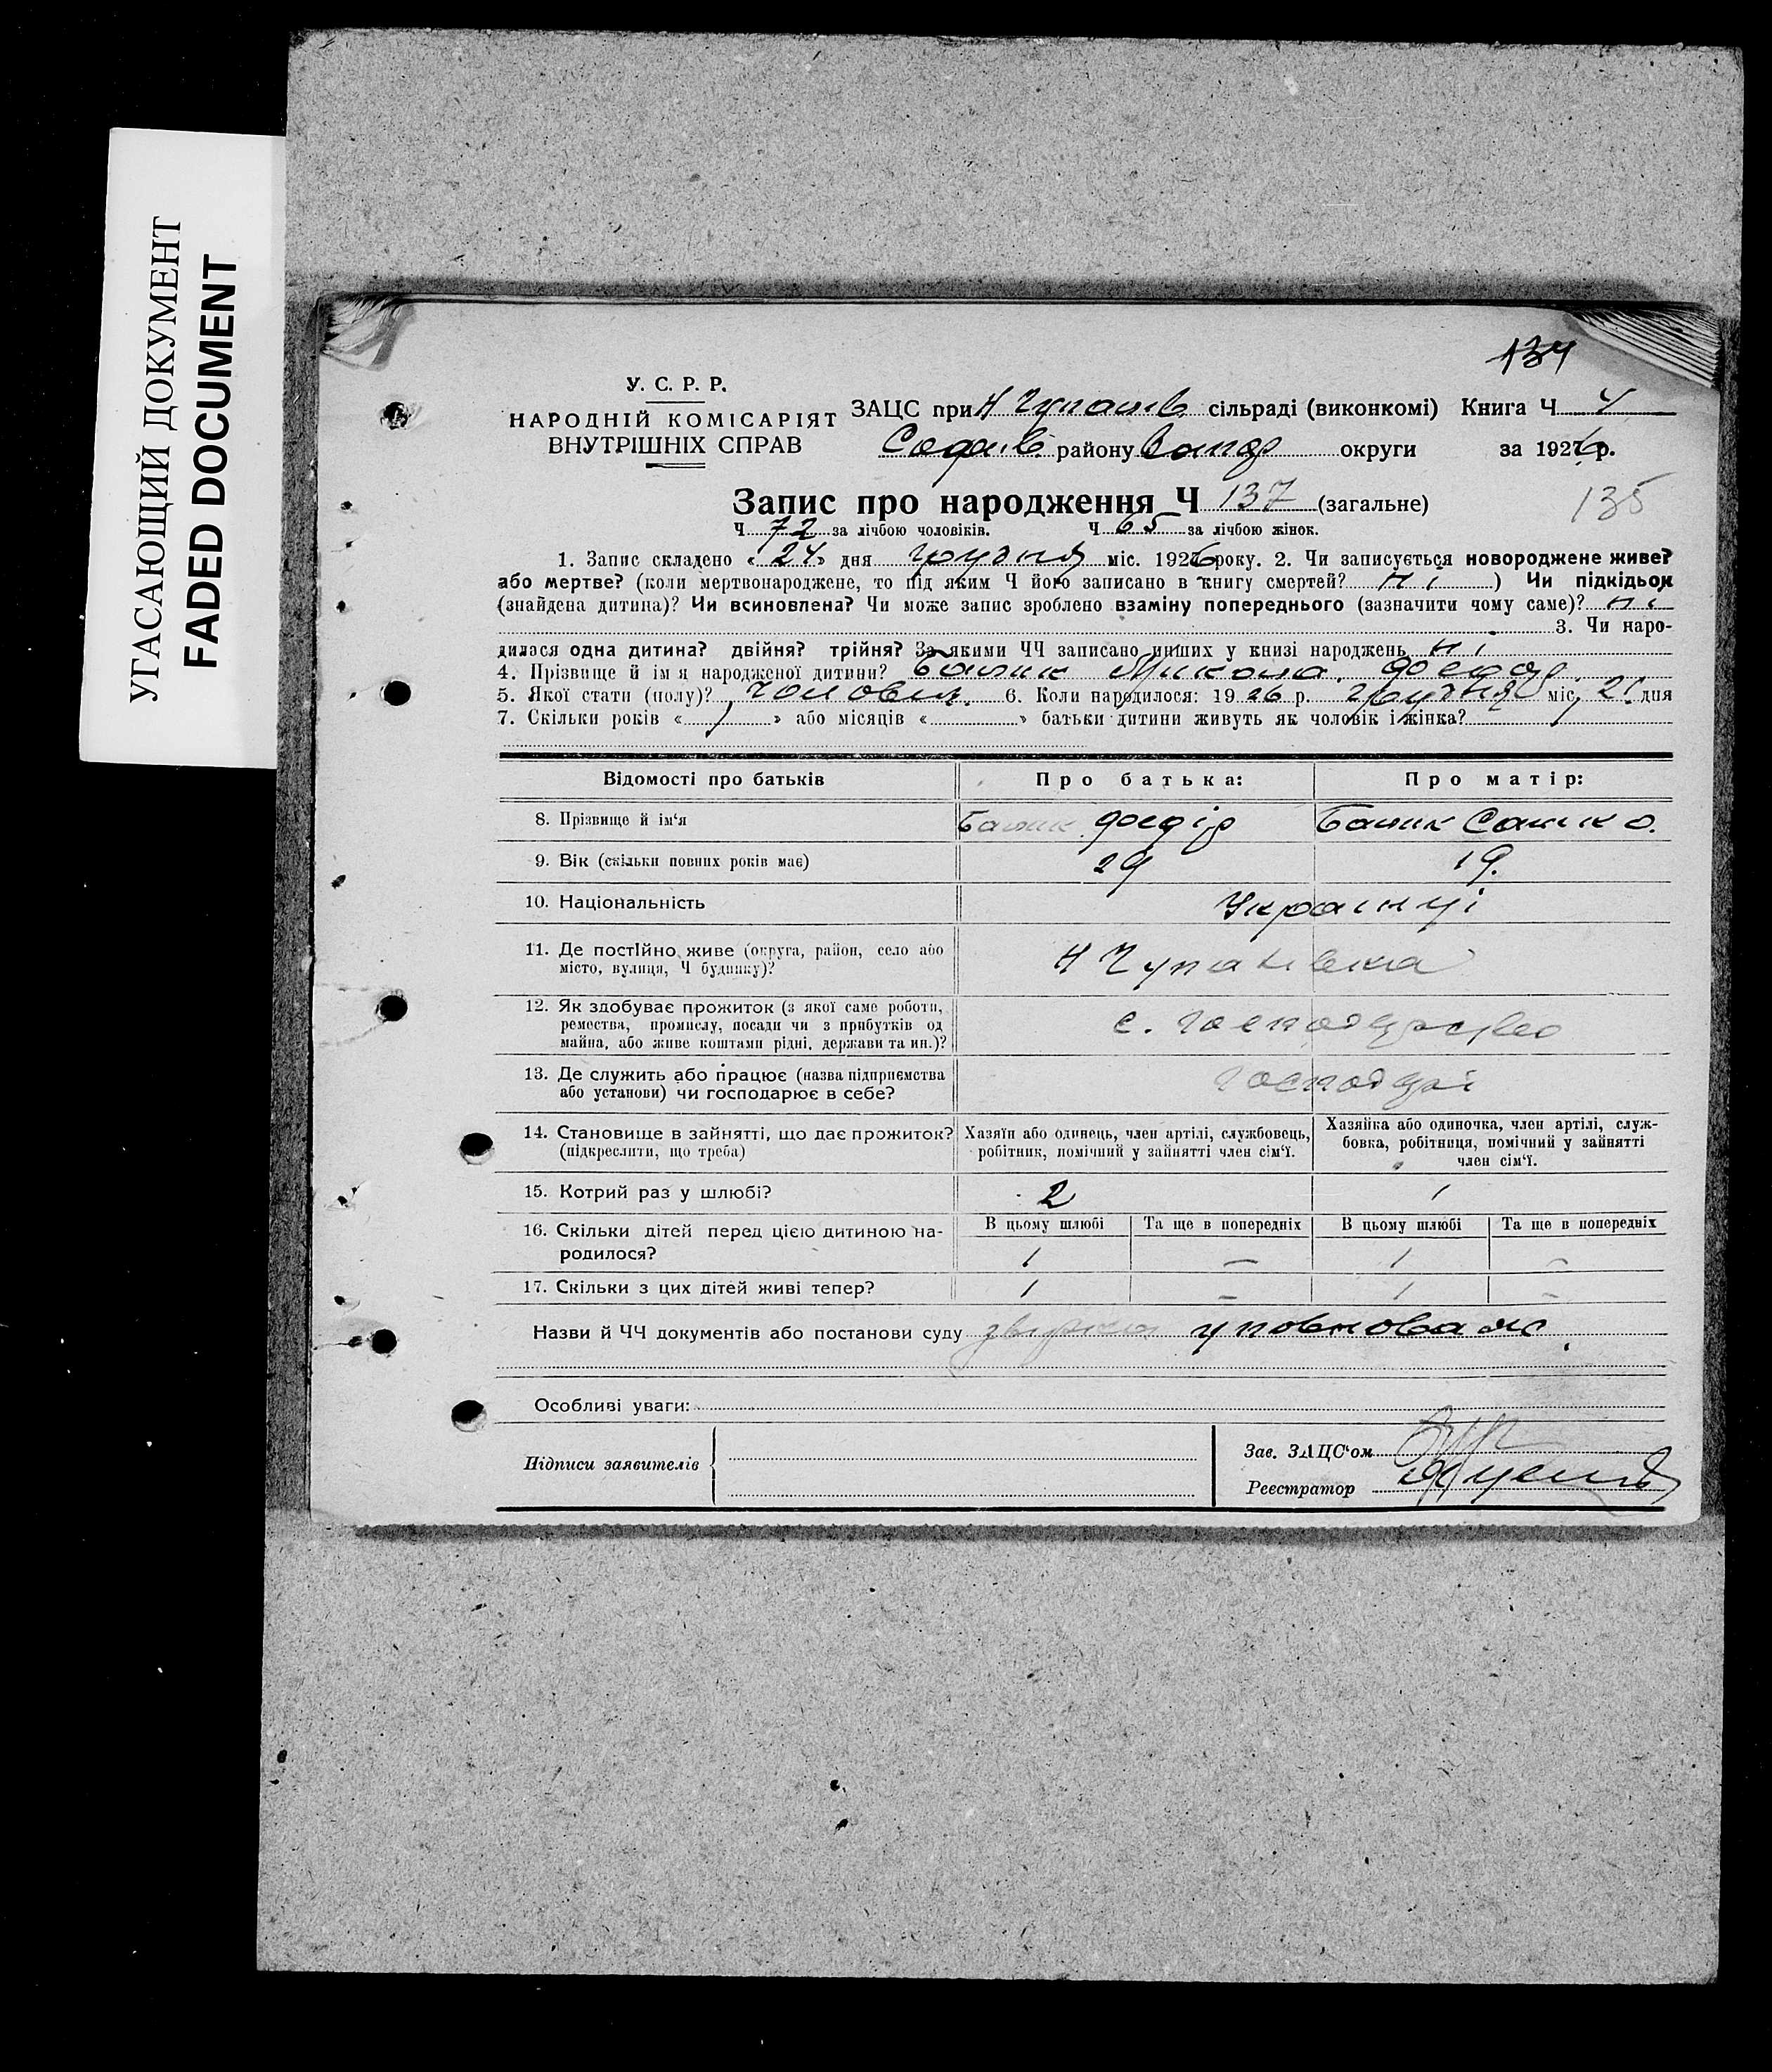 УГАСАЮЩИЙ ДОКУМЕНТ
FADED DOCUMENT
134
У. С. Р. Р.
НАРОДНІЙ КОМІСАРІЯТ
ВНУТРІШНІХ СПРАВ
ЗАЦС при Н Чупахів сільраді (виконкомі) Книга Ч 4
району округи за 1926 р.
135
Запис про народження Ч 137 (загальне)
Ч 72 за лічбою чоловіків. Ч 65 за лічбою жінок.
1. Запис складено «24» дня грудня міс. 1926 року. 2. Чи записується новороджене живе?
або мертве? (коли мертвонароджене, то під яким Ч його записано в книгу смертей? ні ) Чи підкідьок
(знайдена дитина)? Чи всиновлена? Чи може запис зроблено взаміну попереднього (зазначити чому саме)? ні
3. Чи наро-
дилася одна дитина? двійня? трійня? За якими ЧЧ записано инших у книзі народжень ні
4. Прізвище й ім я народженої дитини? Микола
5. Якої стати (полу)? 6. Коли народилося: 1926 р. грудня міс. 21 дня
7. Скільки років « » або місяців « » батьки дитини живуть як чоловік і жінка?
Відомості про батьків Про батька: Про матір:
8. Прізвище й ім‘я
9. Вік (скільки повних років має) 29 19.
10. Національність Українці
11. Де постійно живе (округа, район, село або
місто, вулиця, Ч будинку)?
12. Як здобуває прожиток (з якої саме роботи,
ремества, промислу, посади чи з прибутків од
майна, або живе коштами рідні, держави та ин.)?
с. господарство
13. Де служить або працює (назва підприємства
або установи) чи господарює в себе?
14. Становище в зайнятті, що дає прожиток?
(підкреслити, що треба)
Хазяїн або одинець, член артілі, службовець,
робітник, помічний у зайнятті член сім‘ї.
Хазяйка або одиночка, член артілі, служ-
бовка, робітниця, помічний у зайнятті
член сім‘ї.
15. Котрий раз у шлюбі? 2 1
16. Скільки дітей перед цією дитиною на-
родилося?
В цьому шлюбі Та ще в попередніх В цьому шлюбі Та ще в попередніх
1 — 1 —
17. Скільки з цих дітей живі тепер? 1 — 1 —
Назви й ЧЧ документів або постанови суду
Особливі уваги:
Підписи заявителів
Зав. ЗАЦС‘ом
Реєстратор